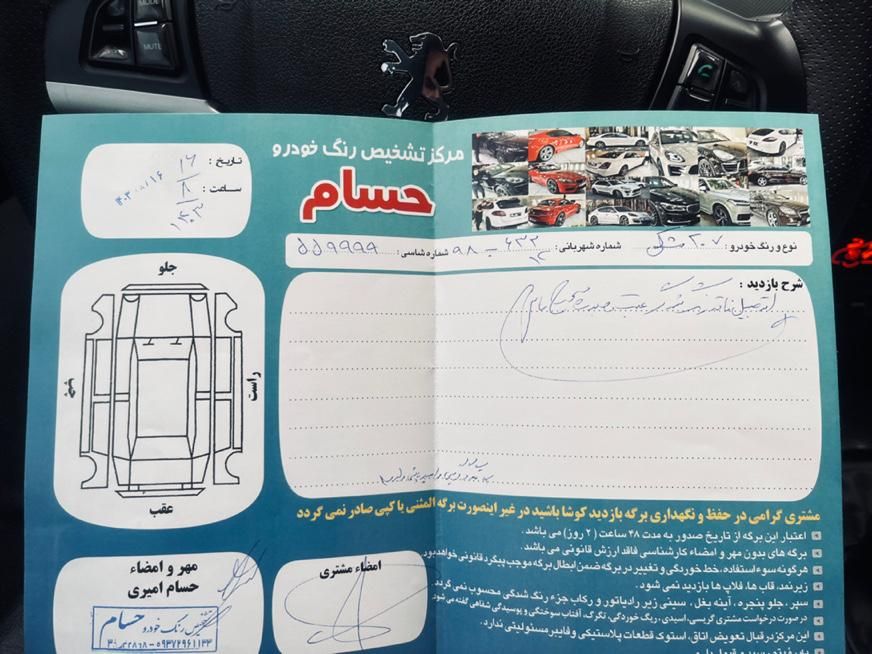 MODE
MUTE
مرکز تشخیص رنگ خودرو
حسام
تاریخ : ۱۶
ساعت : ۸
۱۴۰۳
نوع و رنگ خودرو : ۲۰۷ مشکی شماره شهربانی : ۶۳۲ - ۹۸ شماره شاسی : ۵۵۹۹۹۹
۱۴
جلو
چپ
راست
عقب
شرح بازدید :
مشتری گرامی در حفظ و نگهداری برگه بازدید کوشا باشید در غیر اینصورت برگه المثنی یا کپی صادر نمی گردد
اعتبار این برگه از تاریخ صدور به مدت ۴۸ ساعت ( ۲ روز) می باشد .
برگه های بدون مهر و امضاء کارشناسی فاقد ارزش قانونی می باشد.
هرگونه سوء استفاده، خط خوردگی و تغییر در برگه ضمن ابطال برگه موجب پیگرد قانونی خواهد بود.
زیر نمد، قاب ها، فلاپ ها بازدید نمی شود.
سپر ، جلو پنجره ، آینه بغل ، سینی زیر رادیاتور و رکاب جزء رنگ شدگی محسوب نمی گردد
در صورت درخواست مشتری گریسی، اسیدی، ریگ خوردگی، تگرگ، آفتاب سوختگی و پوسیدگی شفاهی گفته می شود
این مرکز در قبال تعویض اتاق، استوک قطعات پلاستیکی و فایبر مسئولیتی ندارد.
مهر و امضاء
حسام امیری
امضاء مشتری
تشخیص رنگ خودرو حسام
۰۹۳۷۲۹۶۱۱۳۳